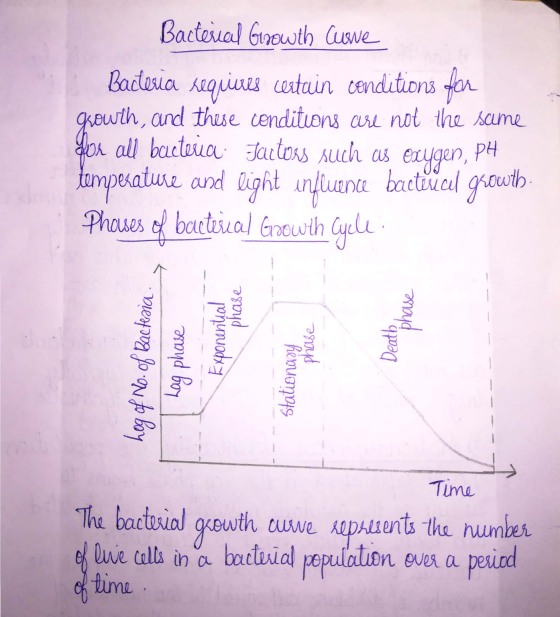 Bacterial Growth Curve
Bacteria requires certain conditions for
growth, and these conditions are not the same
for all bacteria. Factors such as oxygen, PH
temperature and light influence bacterial growth.
Phases of bacterial Growth Cycle.
Log of No. of Bacteria.
Lag phase
Exponential
phase
Stationary
phase
Death
phase
Time
The bacterial growth curve represents the number
of live cells in a bacterial population over a period
of time.